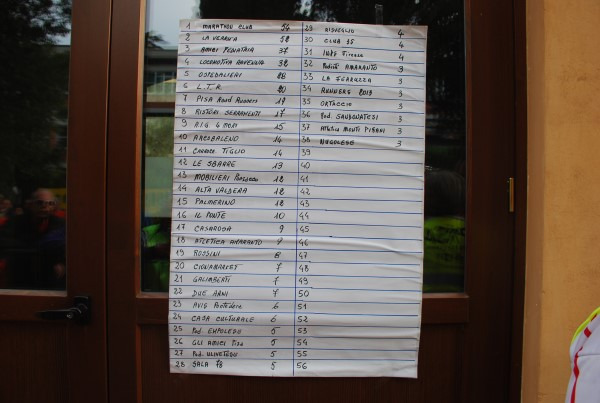 1 MARATHON CLUB 54
2 LA VERRU'A 52
3 AMICI PODIATRIA 37
4 LOCOMOTIVA ARDENNA 32
5 OSPEDALIERI 26
6 L.T.R. 20
7 PISA Road Runners 19
8 RISTORI SERRAMENTI 17
9 15
10 ARCOBALENO 14
11 TIGLIO 14
12 LE SBARRE 13
13 MOBILIERI 12
14 ALTA VALDERA 12
15 PALMERINO 12
16 IL PONTE 10
17 CASAROSA 9
18 ATLETICA AMARANTO 9
19 ROSSINI 8
20 7
21 GALIMBERTI 7
22 DUE ARNI 7
23 AVIS Pontedera 6
24 CASA CULTURALE 6
25 Pod. EMPOLESE 5
26 GLI AMICI Pisa 5
27 Pod. 5
28 SALA 78 5
29 RISVEGLIO 4
30 CLUB 35 4
31 Firenze 4
32 AMARANTO 3
33 LA 3
34 RUNNERS 3
35 ORTACCIO 3
36 Pod. 3
37 Atletica MONTI PISANI 3
38 NUGOLESE 3
39
40
41
42
43
44
45
46
47
48
49
50
51
52
53
54
55
56